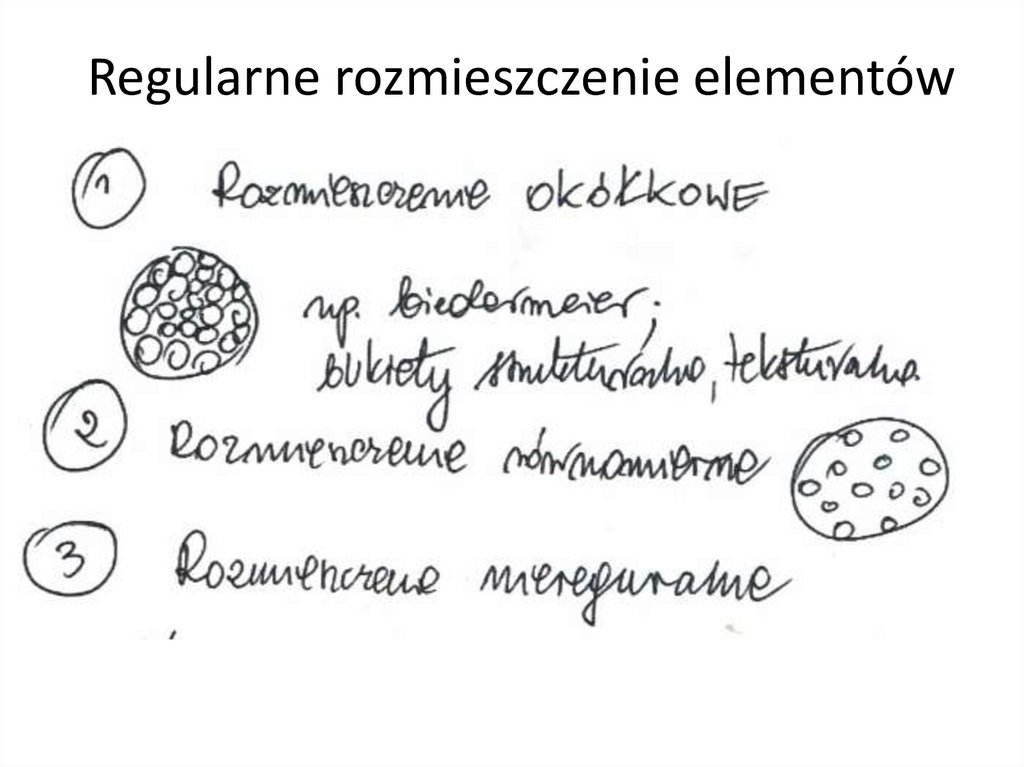 Regularne rozmieszczenie elementów
1 Rozmieszczenie OKÓŁKOWE
np. biedermeier;
bukiety strukturalne, teksturalne
2 Rozmieszczenie równomierne
3 Rozmieszczenie nieregularne